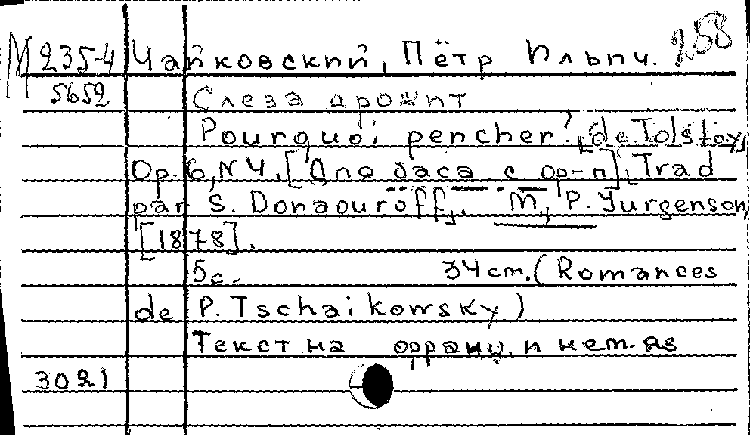 258
М 235-4 Чайковский, Пётр Ильич.
5652 Слеза дрожит
Pourquoi pencher?, de Tolstoy,
Op. 6, N 4. [Для баса с ор-п]. Trad
par S. Donaouroff. М., P. Jurgenson
[1878].
5 с. 34 cm. (Romances
de P. Tschaikowsky)
Текст на франц. и нем. яз
3021